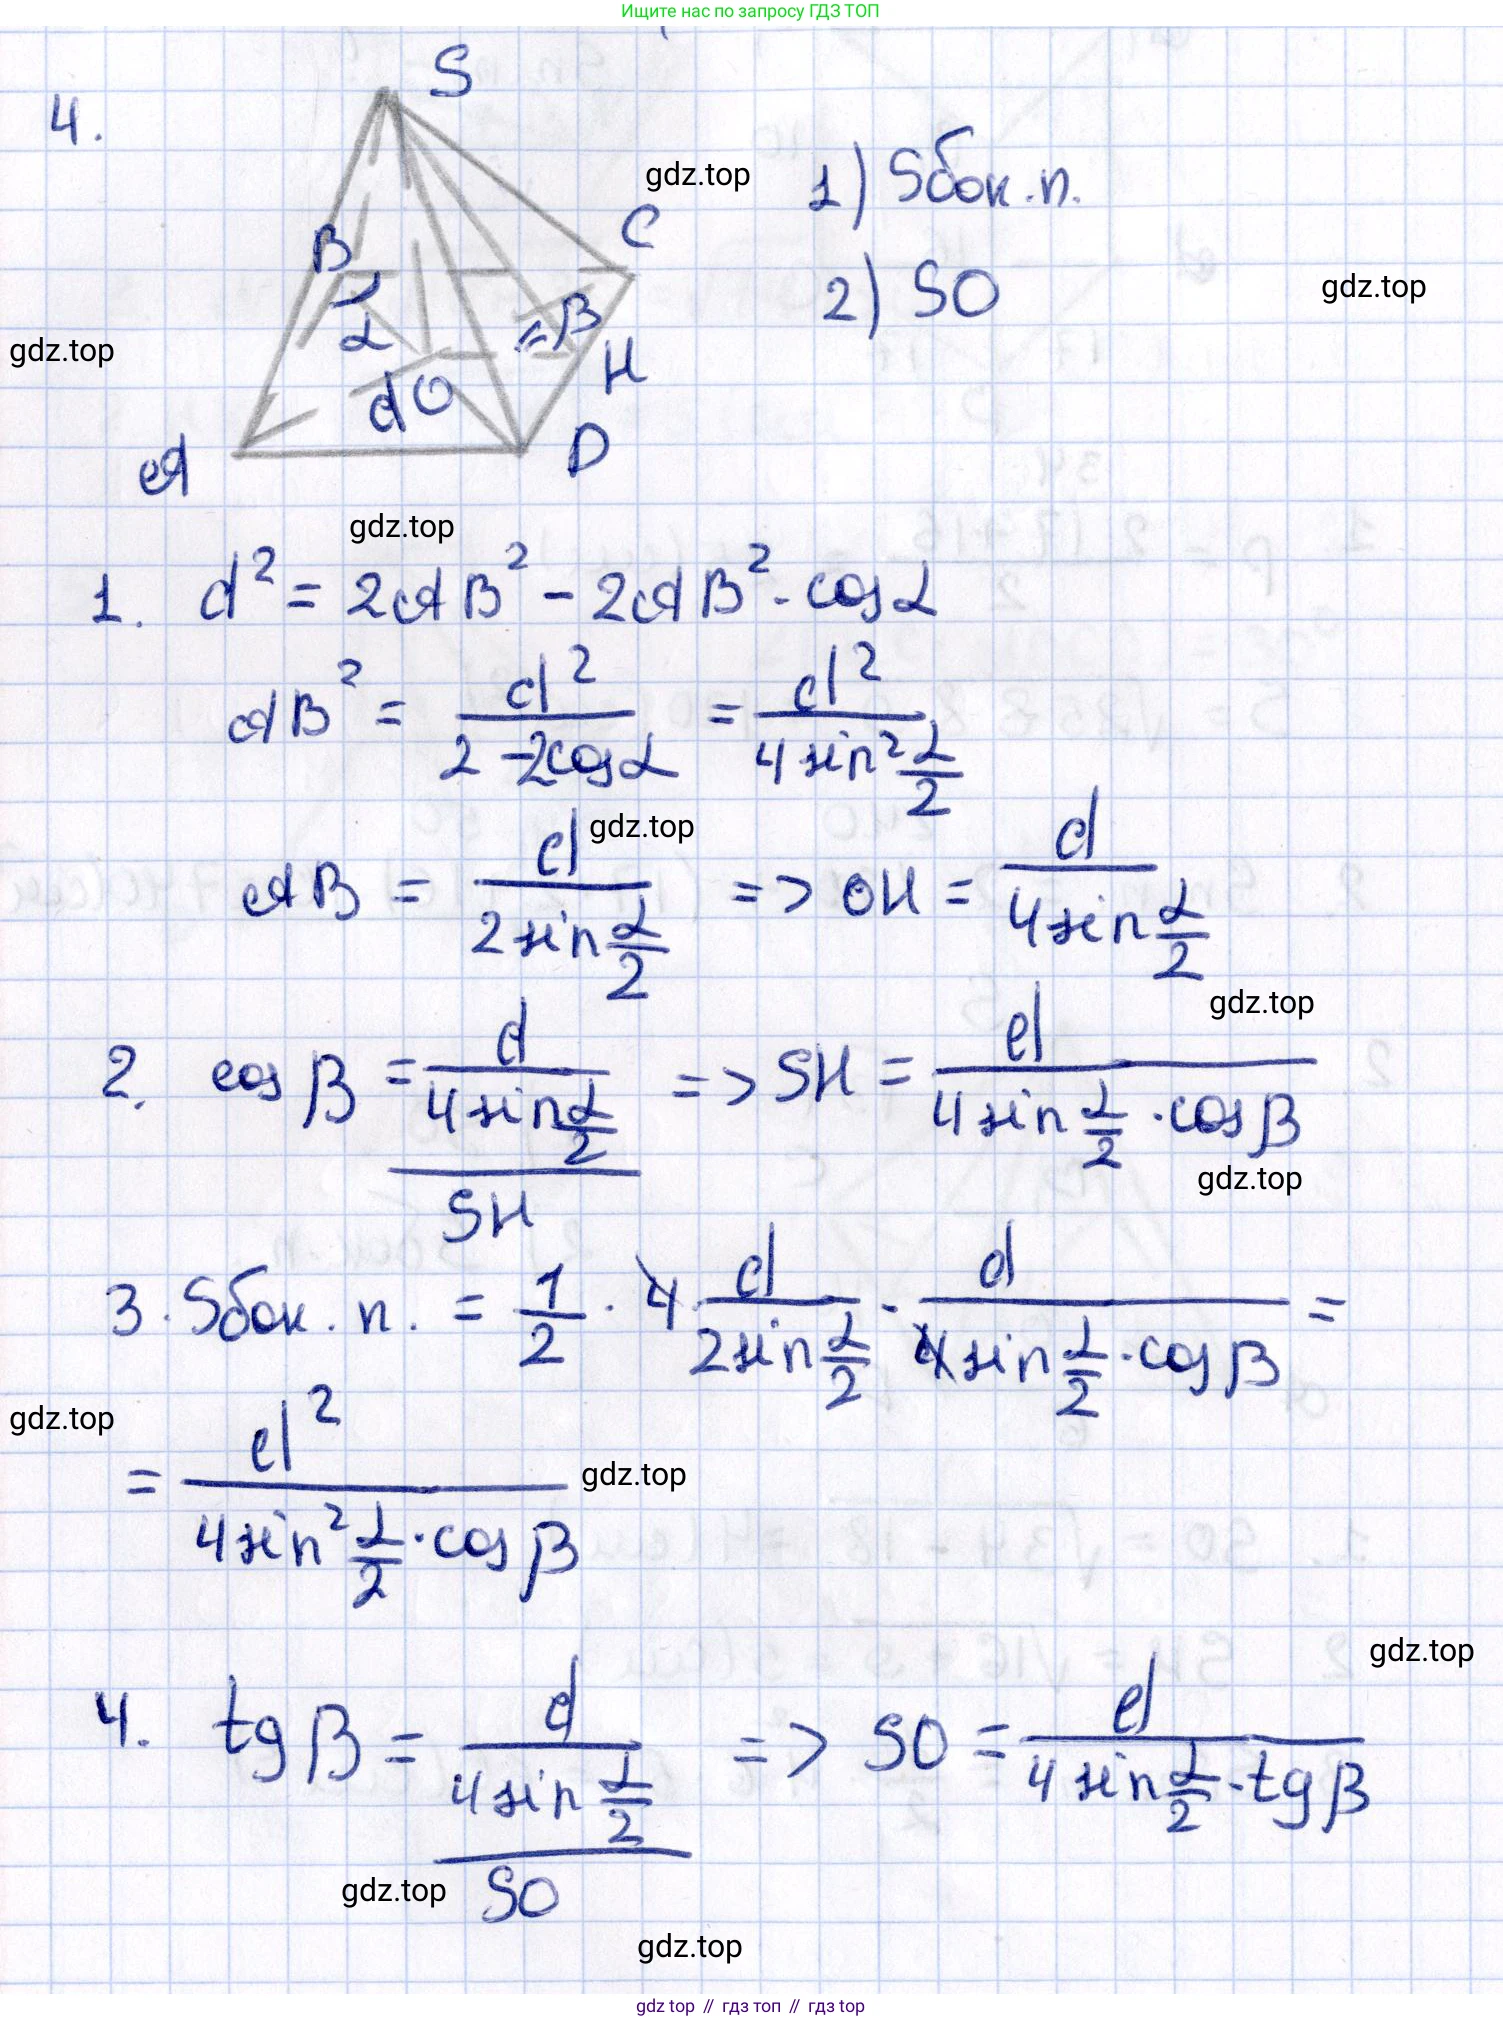 Ищите нас по запросу ГДЗ ТОП
4.
S
B
C
α
β
H
d
O
A
D
1) Sбок.п.
2) SO
gdz.top
gdz.top
gdz.top
gdz.top
1. d² = 2AB² - 2AB² · cos α
AB² = d² / (2 - 2cos α) = d² / (4 sin² α/2)
gdz.top
AB = d / (2 sin α/2) => OH = d / (4 sin α/2)
gdz.top
2. cos β = (d / (4 sin α/2)) / SH => SH = d / (4 sin α/2 · cos β)
gdz.top
3. Sбок.п. = 1/2 · 4 · d / (2 sin α/2) · d / (4 sin α/2 · cos β) =
gdz.top
= d² / (4 sin² α/2 · cos β)
gdz.top
gdz.top
4. tg β = (d / (4 sin α/2)) / SO => SO = d / (4 sin α/2 · tg β)
gdz.top
gdz.top
gdz top // гдз топ // гдз top